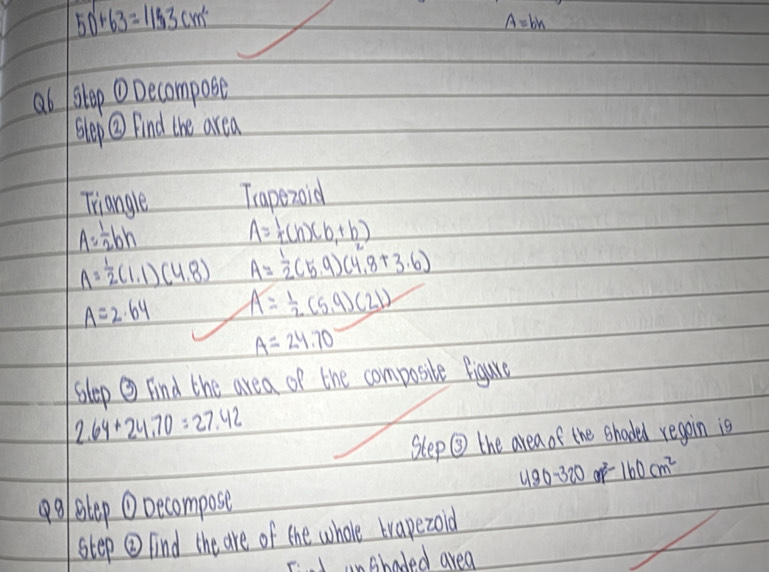 50+63=113cm²
A=bh
Q6 Step ① Decompose
Step ② Find the area
Triangle Trapezoid
A=½bh A=½(h)(b₁+b₂)
A=½(1.1)(4.8) A=½(5.9)(4.8+3.6)
A=2.64 A=½(5.9)(21)
A=24.70
Step ③ Find the area of the composite figure
2.64+24.70=27.42
Step ③ the area of the shaded regoin is
480-320 160cm²
Step ① Decompose
Step ② Find the are of the whole trapezoid
unshaded area